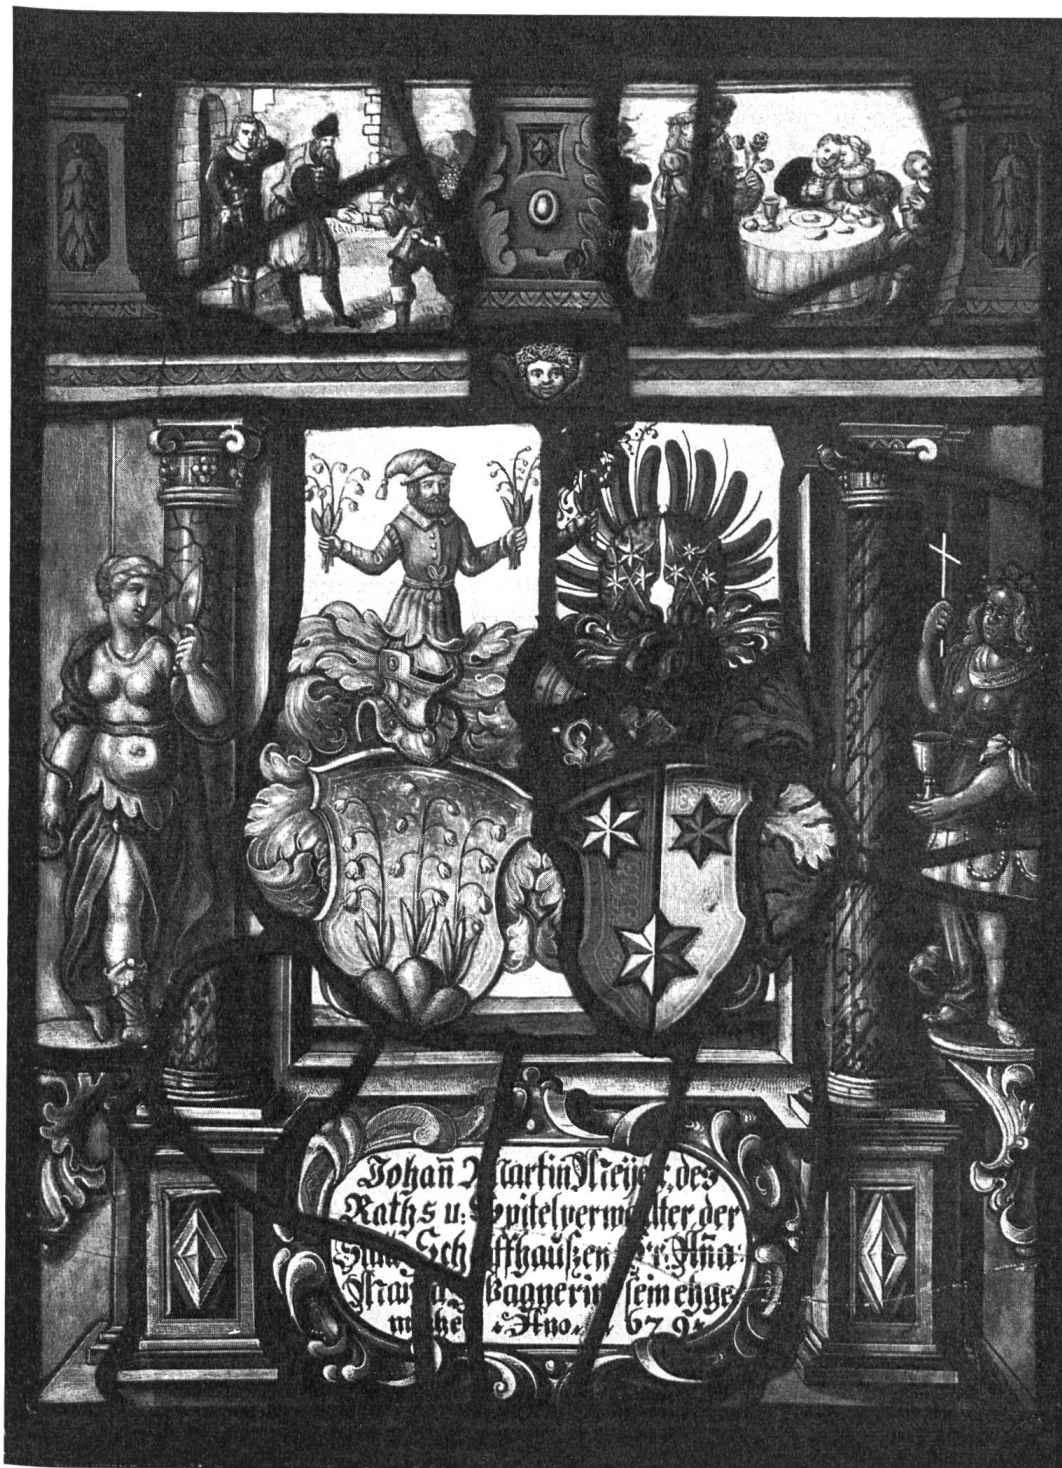 Johan̄ Martin Meÿer, des
Raths u: Spitelverwalter der
Statt Schaffhaußen Fr. An̄a
Maria Wagnerin sein ehge
mahel . Ano . 1679 .